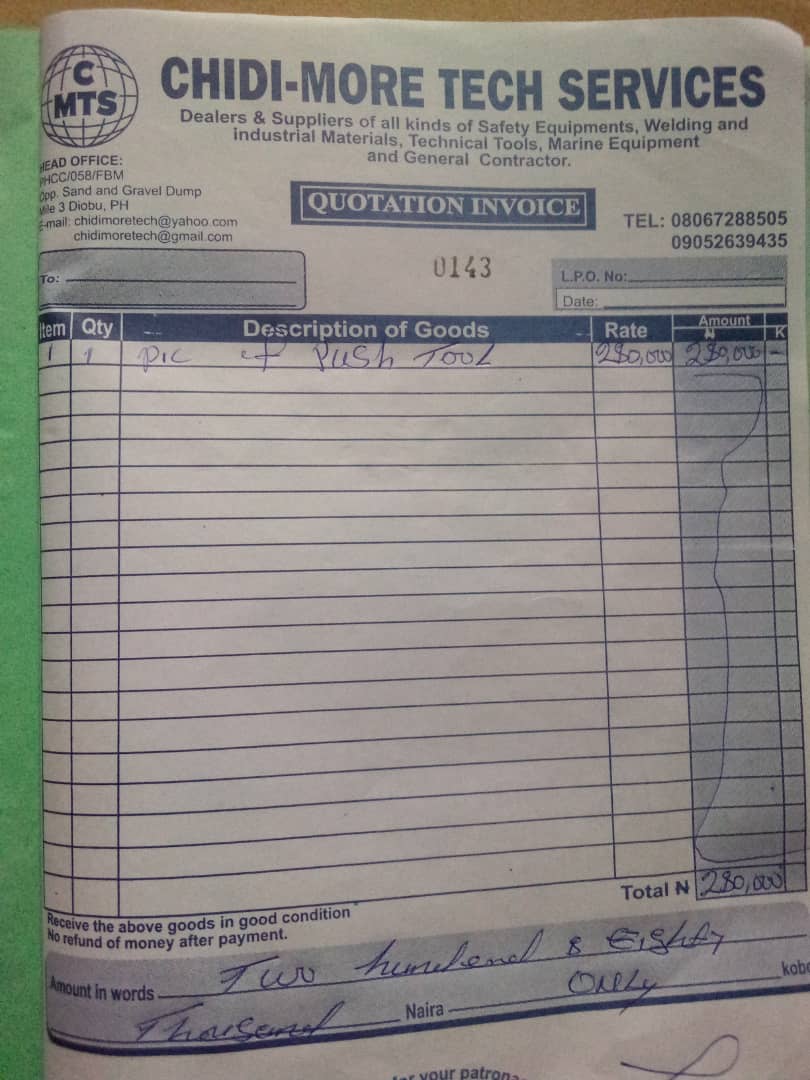 C
MTS
CHIDI-MORE TECH SERVICES
Dealers & Suppliers of all kinds of Safety Equipments, Welding and
industrial Materials, Technical Tools, Marine Equipment
and General Contractor.
HEAD OFFICE:
PHCC/058/FBM
Opp. Sand and Gravel Dump
Mile 3 Diobu, PH
E-mail: chidimoretech@yahoo.com
chidimoretech@gmail.com
QUOTATION INVOICE
TEL: 08067288505
09052639435
0143
To:
L.P.O. No:
Date:
Item Qty Description of Goods Rate Amount
₦ K
1 1 Pic of Push Tool 280,000 280,000 -
Total ₦ 280,000
Receive the above goods in good condition
No refund of money after payment.
Amount in words Two hundred & Eighty
Thousand Naira Only kobo
your patron